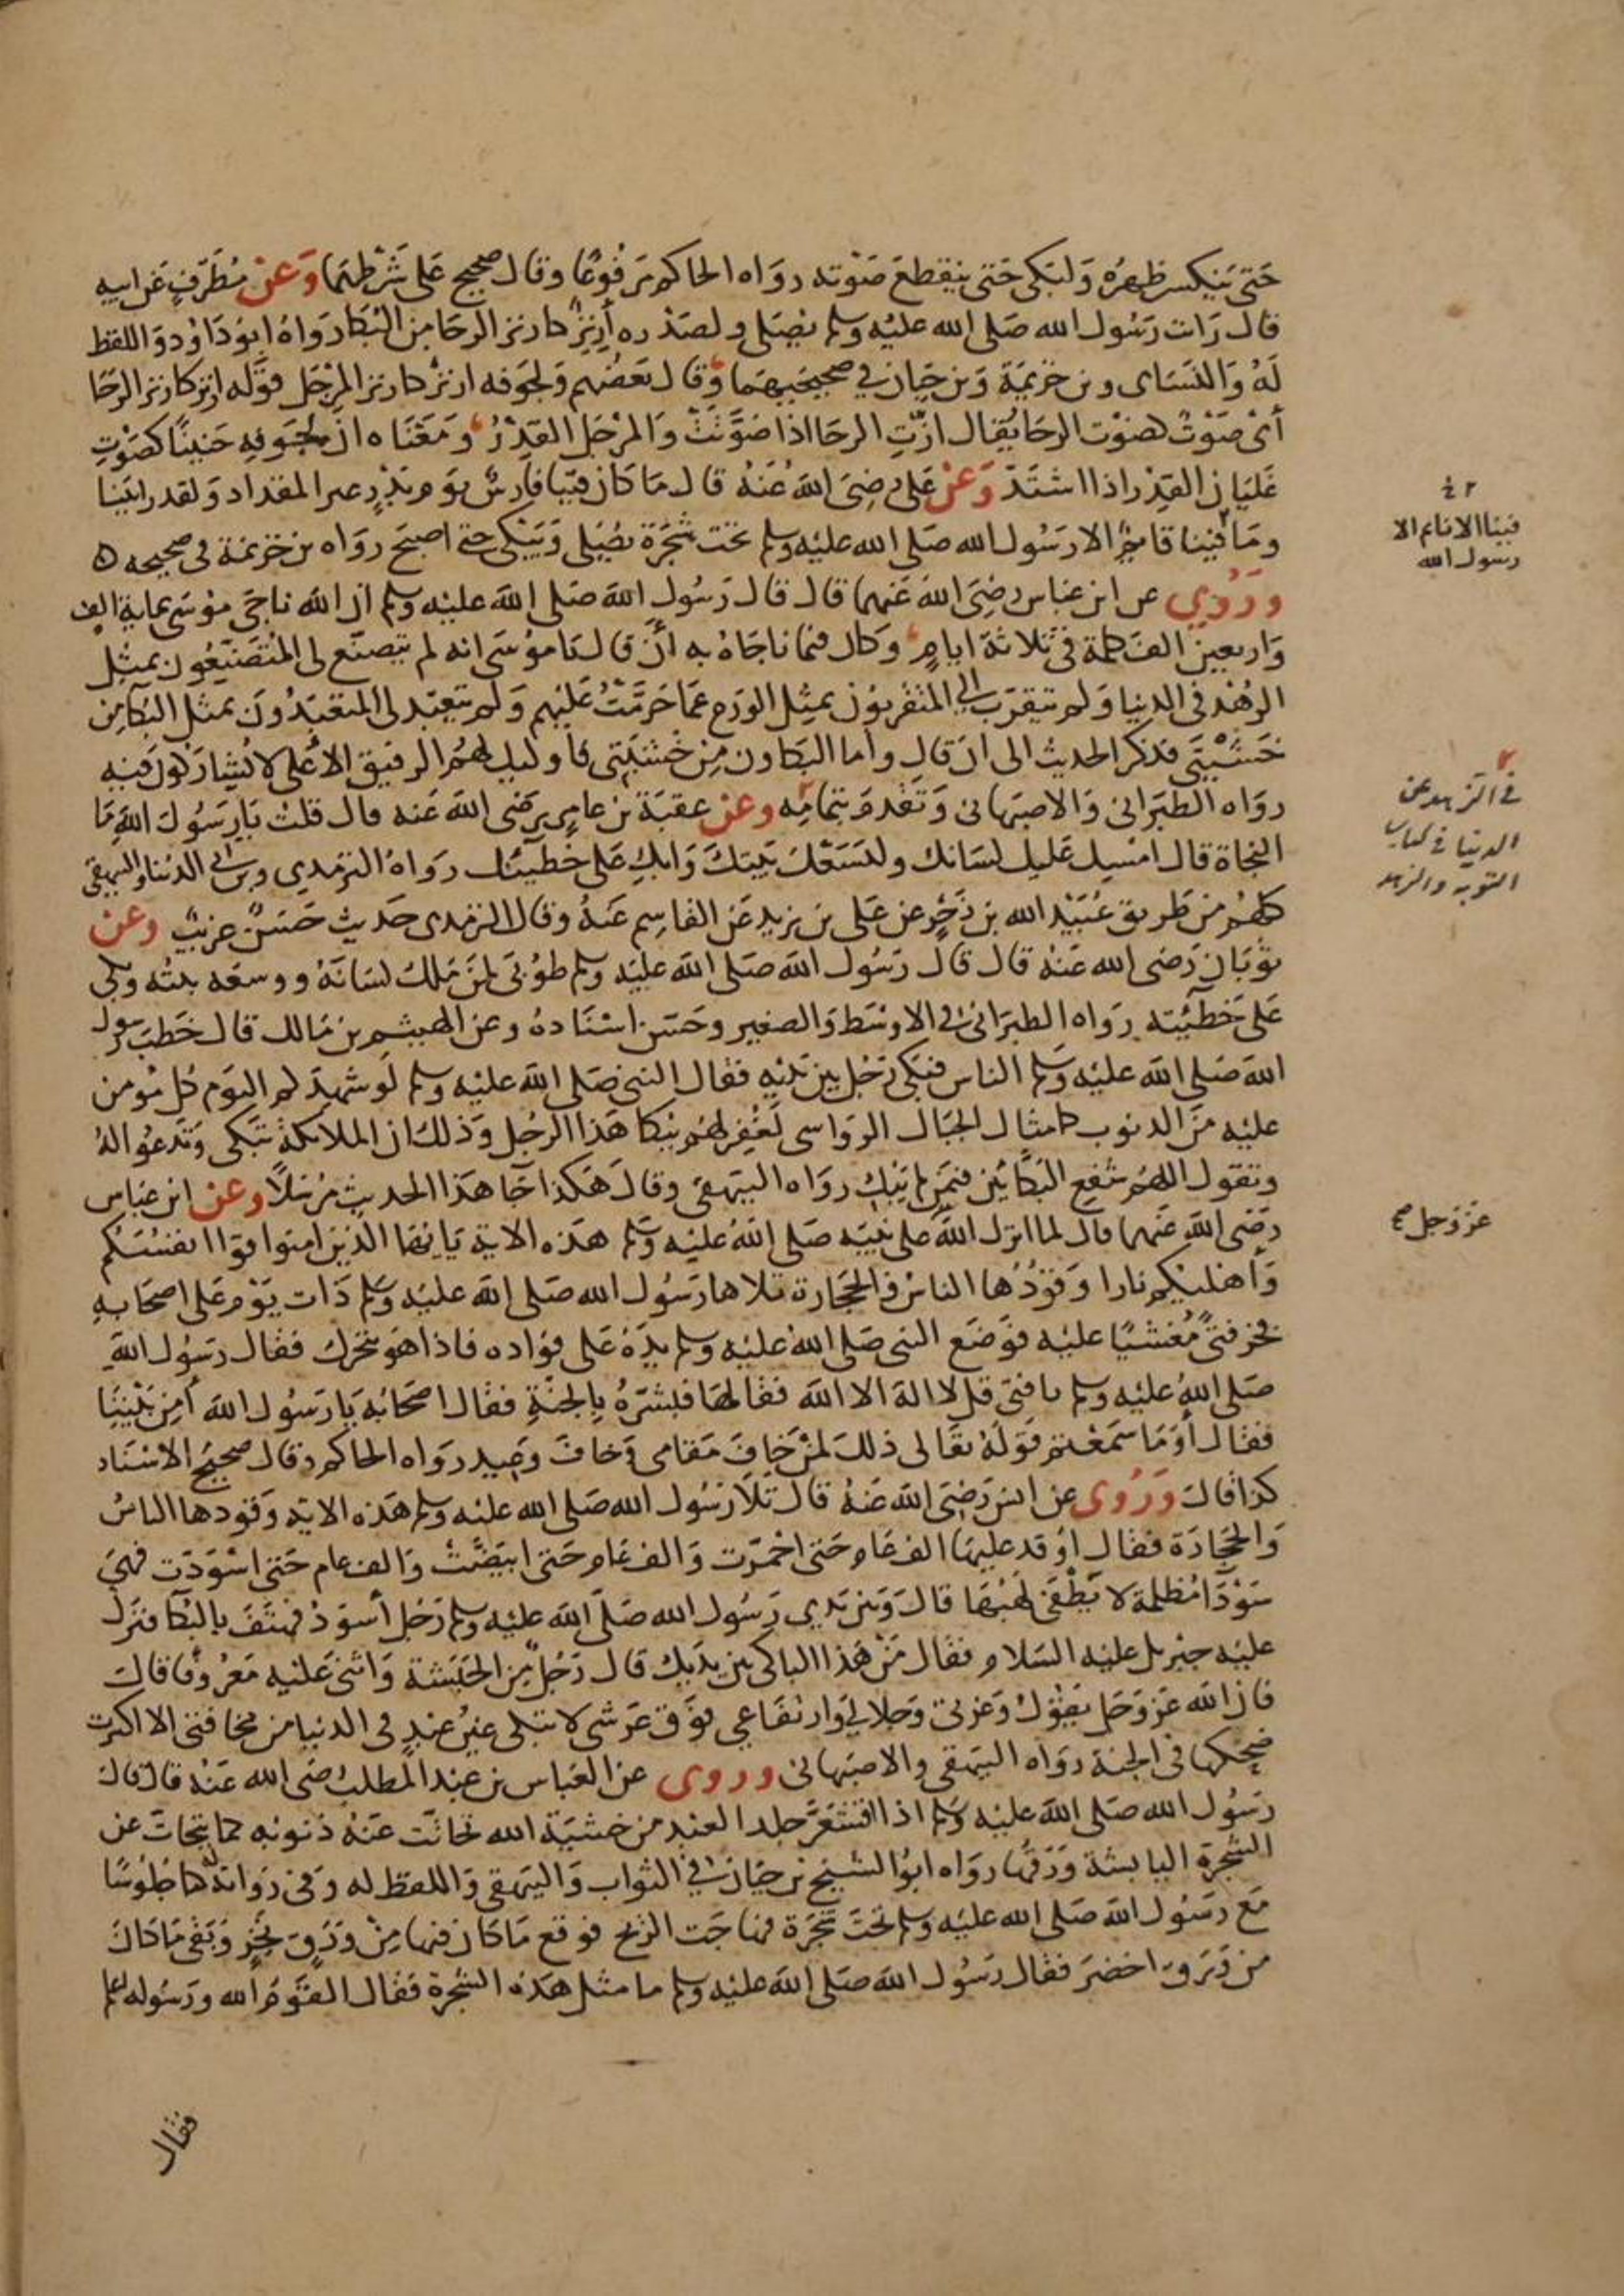 حتى ينكسر ظهره وليبكي حتى ينقطع صوته رواه الحاكم مرفوعا وقال صحيح على شرطهما وعن مطرف عن ابيه
قال رات رسول الله صلى الله عليه وسلم يصلى ولصدره أزيز كازيز الرحا من البكا رواه ابو داود واللفظ
له والنساى وبن خزيمة وبن حبان في صحيحيهما وقال بعضهم ولجوفه ازيز كازيز المرجل قوله ازيز كازيز الرحا
أى صوت كصوت الرحا يقال ازّت الرحا اذا صوّتت والمرجل القِدْرُ ومعناه ان لجوفه حنينا كصوت
غليان القِدْر اذا اشتدّ وعن على رضى الله عنه قال ما كان فينا فارس يوم بدر غير المقداد ولقد رايتنا
وما فينا قايم الا رسول الله صلى الله عليه وسلم تحت شجرة يصلى ويبكى حتى اصبح رواه بن خزيمة فى صحيحه ه
وروي عن ابن عباس رضى الله عنهما قال قال رسول الله صلى الله عليه وسلم ان الله ناجى موسى بماية الف
واربعين الف كلمة فى ثلاثة ايام وكان فيما ناجاه به أن قال يا موسى انه لم يتصنع لى المتصنعون بمثل
الزهد فى الدنيا ولم يتقرب الي المتقربون بمثل الورع عما حرّمت عليهم ولم يتعبد لى المتعبدون بمثل البكا من
خشيتى فذكر الحديث الى ان قال وأما البكاون من خشيتى فاوليك لهم الرفيق الأعلى لا يشاركون فيه
رواه الطبرانى والاصبهانى وتقدم بتمامه وعن عقبة بن عامر رضى الله عنه قال قلت يا رسول الله ما
النجاة قال امسك عليك لسانك وليسعك بيتك وابكِ على خطيئتك رواه الترمذي وبن ابى الدنيا والبيهقى
كلهم من طريق عبيد الله بن زحر عن على بن يزيد عن القاسم عنه وقال الترمذى حديث حسن غريب وعن
ثوبان رضى الله عنه قال قال رسول الله صلى الله عليه وسلم طوبى لمن ملك لسانه ووسعه بيته وبكى
على خطيئته رواه الطبرانى فى الاوسط والصغير وحسّن اسناده وعن الهيثم بن مالك قال خطب رسول
الله صلى الله عليه وسلم الناس فبكى رجل بين يديه فقال النبى صلى الله عليه وسلم لو شهدكم اليوم كل مومن
عليه من الذنوب كامثال الجبال الرواسى لغُفِر لهم ببكا هذا الرجل وذلك ان الملائكة تبكى وتدعو اله
وتقول اللهم شفع البكّائين فيمن لم يبك رواه البيهقى وقال هكذا جآ هذا الحديث مرسلاً وعن ابن عباس
رضى الله عنهما قال لما انزل الله على نبيه صلى الله عليه وسلم هذه الاية يا ايها الذين امنوا قوا انفسكم
وأهليكم نارا وقودُها الناس والحجارة تلاها رسول الله صلى الله عليه وسلم ذات يوم على اصحابه
فخر فتىً مغشيًا عليه فوضع النبى صلى الله عليه وسلم يده على فواده فاذا هو يتحرك فقال رسول الله
صلى الله عليه وسلم يا فتى قل لا اله الا الله فقالها فبشره بالجنة فقال اصحابه يا رسول الله أمن بيننا
فقال أوما سمعتم قوله تعالى ذلك لمن خاف مقامى وخاف وعيد رواه الحاكم وقال صحيح الاسناد
كذا قال وروى عن انس رضى الله عنه قال تلا رسول الله صلى الله عليه وسلم هذه الاية وقودها الناس
والحجارة فقال اوقد عليها الف عام حتى احمرّت والف عام حتى ابيضّت والف عام حتى اسودّت فهى
سودا مظلمة لا يطفى لهبُها قال وبين يدي رسول الله صلى الله عليه وسلم رجل أسود فهتف بالبكا فنزل
عليه جبريل عليه السلام فقال من هذا الباكى بين يديك قال رجل من الحبشة واثنى عليه معروفا قال
فان الله عز وجل يقول وعزتى وجلالي وارتفاعي فوق عرشى لا تبكى عين عبد فى الدنيا من مخافتى الا اكثرت
ضحكها فى الجنة رواه البيهقى والاصبهانى وروى عن العباس بن عبد المطلب رضى الله عنه قال قال
رسول الله صلى الله عليه وسلم اذا اقشعرّ جلد العبد من خشية الله تحاتّت عنه ذنوبه كما يتحات عن
الشجرة اليابسة ورقها رواه ابو الشيخ بن حبان فى الثواب والبيهقى واللفظ له وفى رواية كنا جلوسًا
مع رسول الله صلى الله عليه وسلم تحت شجرة فهاجت الريح فوقع ما كان فيها من ورق نخر وبقى ما كان
من ورق اخضر فقال رسول الله صلى الله عليه وسلم ما مثل هذه الشجرة فقال القوم الله ورسوله اعلم
فقال
فينا الا نايم الا
رسول الله
فى الزهد عن
الدنيا فى كتاب
التوبة والزهد
عز وجل صح